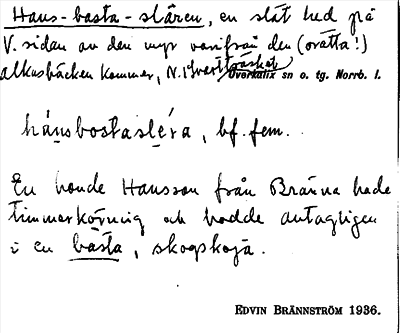 Hans-basta-slåren, en slåt hed på
V. sidan av den myr varifrån den (orätta!)
alkasbäcken kommer, N. Svartträsket
Överkalix sn o. tg. Norrb. l.
hánsbostasléra, bf. fem.
En bonde Hansson från Bränna hade
timmerkörning och hadde antagligen
i en básta, skogskoja.
EDVIN BRÄNNSTRÖM 1936.